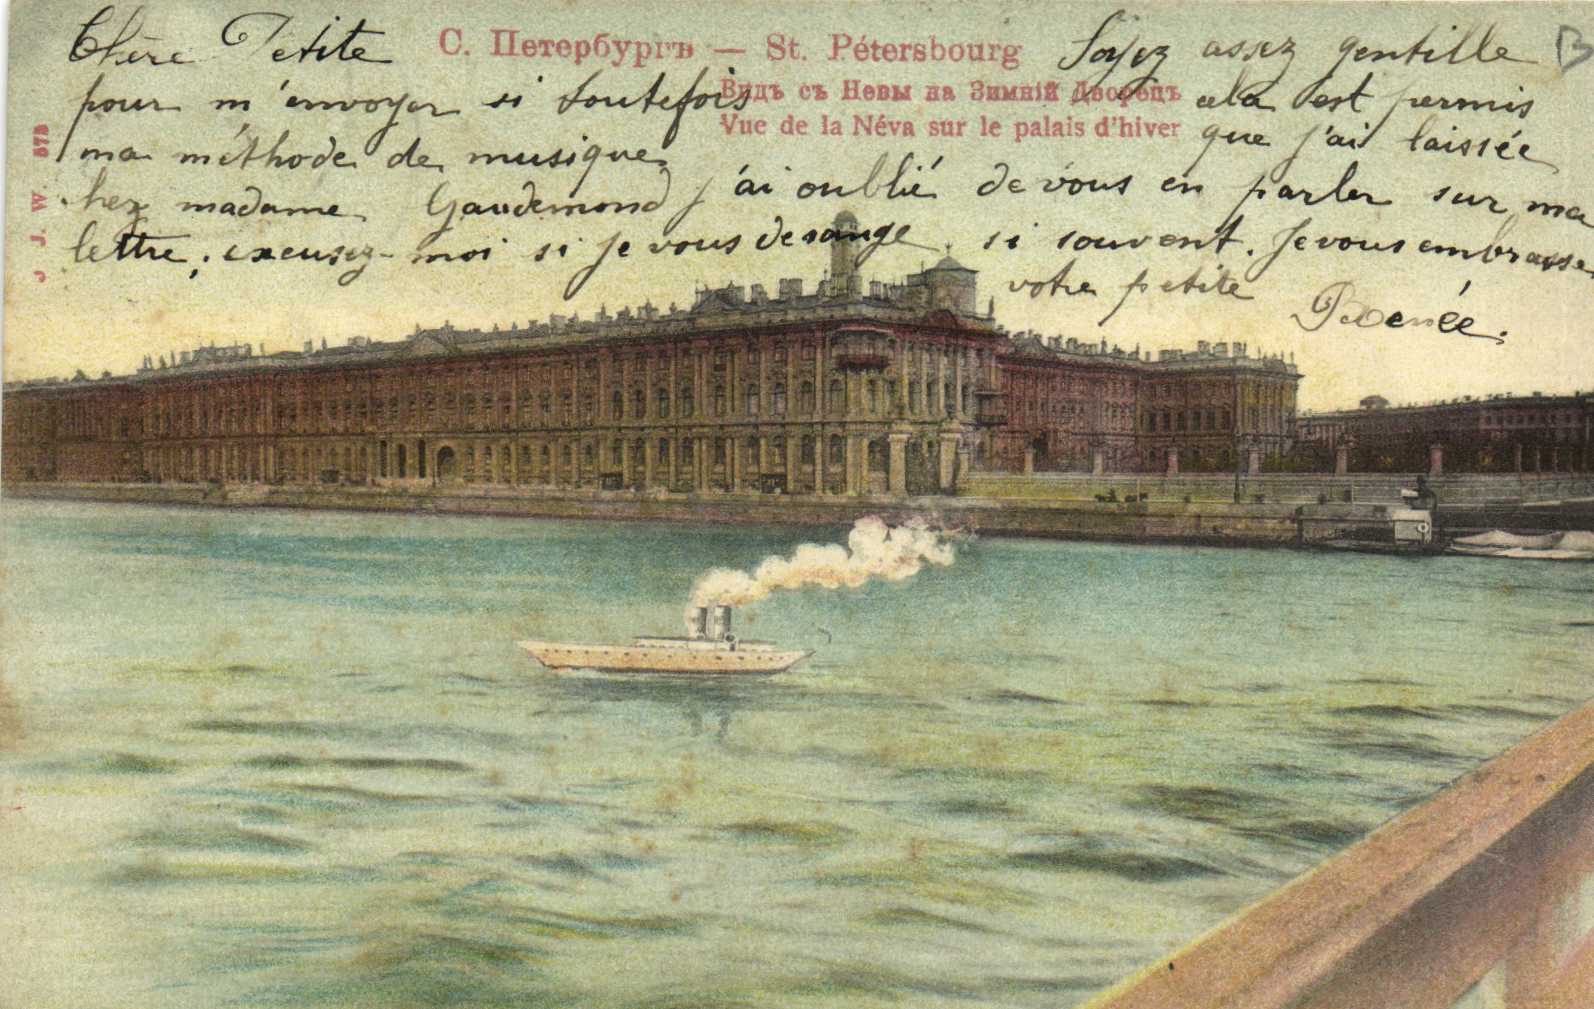 Chère Petite
С. Петербургъ — St. Pétersbourg
Soyez assez gentille
pour m'envoyer si toutefois
Видъ съ Невы на Зимній Дворецъ
cela est permis
Vue de la Néva sur le palais d'hiver
que j'ai laissée
ma méthode de musique
chez madame Gaudemond j'ai oublié de vous en parler sur ma
lettre; excusez-moi si je vous dérange si souvent. Je vous embrasse
votre petite
Renée.
J. J. W. 573
B